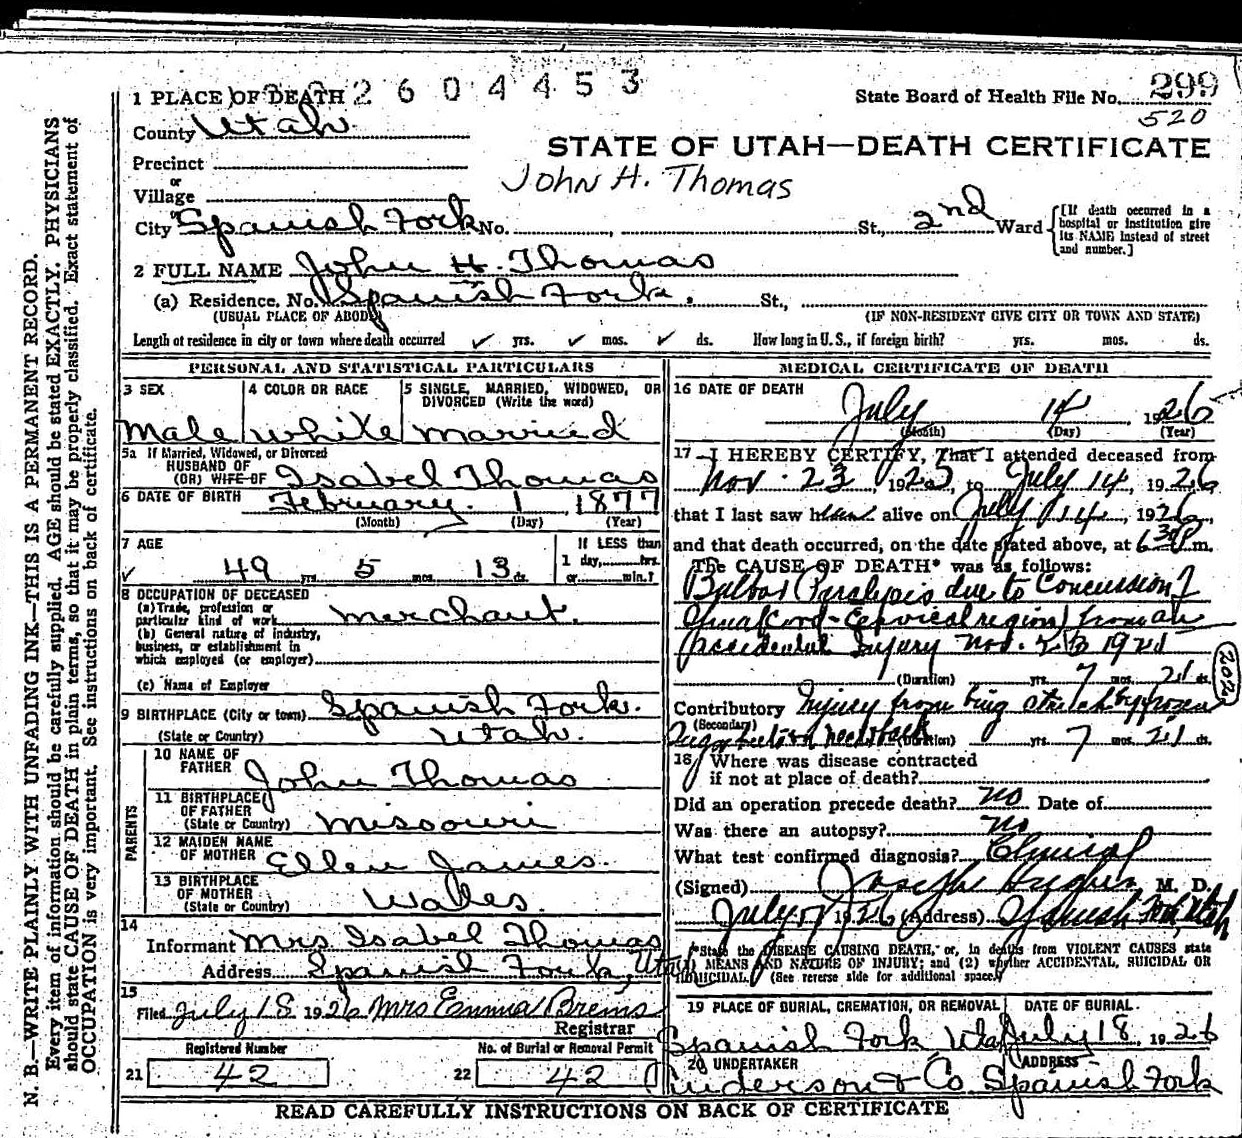 2604453
1 PLACE OF DEATH
State Board of Health File No. 299
520
County Utah
STATE OF UTAH—DEATH CERTIFICATE
Precinct
or
John H. Thomas
Village
or
City Spanish Fork No. , St., 2nd Ward
[If death occurred in a hospital or institution give its NAME instead of street and number.]
2 FULL NAME John H. Thomas
(a) Residence. No. Spanish Fork. St.,
(USUAL PLACE OF ABODE) (IF NON-RESIDENT GIVE CITY OR TOWN AND STATE)
Length of residence in city or town where death occurred ✓ yrs. ✓ mos. ✓ ds. How long in U. S., if foreign birth? yrs. mos. ds.
PERSONAL AND STATISTICAL PARTICULARS
3 SEX 4 COLOR OR RACE 5 SINGLE, MARRIED, WIDOWED, OR DIVORCED (Write the word)
Male white married
5a If Married, Widowed, or Divorced
HUSBAND OF
(OR) WIFE OF Isabel Thomas
6 DATE OF BIRTH February 1, 1877
(Month) (Day) (Year)
7 AGE If LESS than
1 day, hrs.
✓ 49 yrs. 5 mos. 13 ds. or min.?
8 OCCUPATION OF DECEASED
(a) Trade, profession or
particular kind of work Merchant.
(b) General nature of industry,
business, or establishment in
which employed (or employer)
(c) Name of Employer
9 BIRTHPLACE (City or town) Spanish Fork.
(State or Country) Utah.
PARENTS
10 NAME OF
FATHER John Thomas
11 BIRTHPLACE
OF FATHER
(State or Country) Missouri
12 MAIDEN NAME
OF MOTHER Ellen James.
13 BIRTHPLACE
OF MOTHER
(State or Country) Wales.
14
Informant Mrs Isabel Thomas
Address Spanish Fork, Utah
15
Filed July 18 1926 Mrs Emma Brems
Registrar
Registered Number No. of Burial or Removal Permit
21 42 22 42
MEDICAL CERTIFICATE OF DEATH
16 DATE OF DEATH
July 14, 1926
(Month) (Day) (Year)
17 I HEREBY CERTIFY, That I attended deceased from
Nov. 23, 1925, to July 14, 1926
that I last saw him alive on July 14, 1926,
and that death occurred, on the date stated above, at 6 30 P m.
The CAUSE OF DEATH* was as follows:
Bulbar Paralysis due to Concussion of
Spinal Cord - Cervical region) from an
Accidental Injury Nov. 23 1925
(Duration) yrs. 7 mos. 21 ds.
202
Contributory Injury from being struck by frozen
(Secondary)
Sugar beet on neck & back (Duration) yrs. 7 mos. 21 ds.
18 Where was disease contracted
if not at place of death?
Did an operation precede death? no Date of
Was there an autopsy? no
What test confirmed diagnosis? Clinical
(Signed) Joseph Hughes M. D.
July 1926 (Address) Spanish Fork, Utah
*State the DISEASE CAUSING DEATH, or, in deaths from VIOLENT CAUSES state
(1) MEANS AND NATURE OF INJURY; and (2) whether ACCIDENTAL, SUICIDAL OR
HOMICIDAL. (See reverse side for additional space.)
19 PLACE OF BURIAL, CREMATION, OR REMOVAL DATE OF BURIAL
Spanish Fork, Utah July 18, 1926
20 UNDERTAKER ADDRESS
Anderson & Co Spanish Fork
READ CAREFULLY INSTRUCTIONS ON BACK OF CERTIFICATE
N. B.—WRITE PLAINLY WITH UNFADING INK—THIS IS A PERMANENT RECORD.
Every item of information should be carefully supplied. AGE should be stated EXACTLY. PHYSICIANS
should state CAUSE OF DEATH in plain terms, so that it may be properly classified. Exact statement of
OCCUPATION is very important. See instructions on back of certificate.